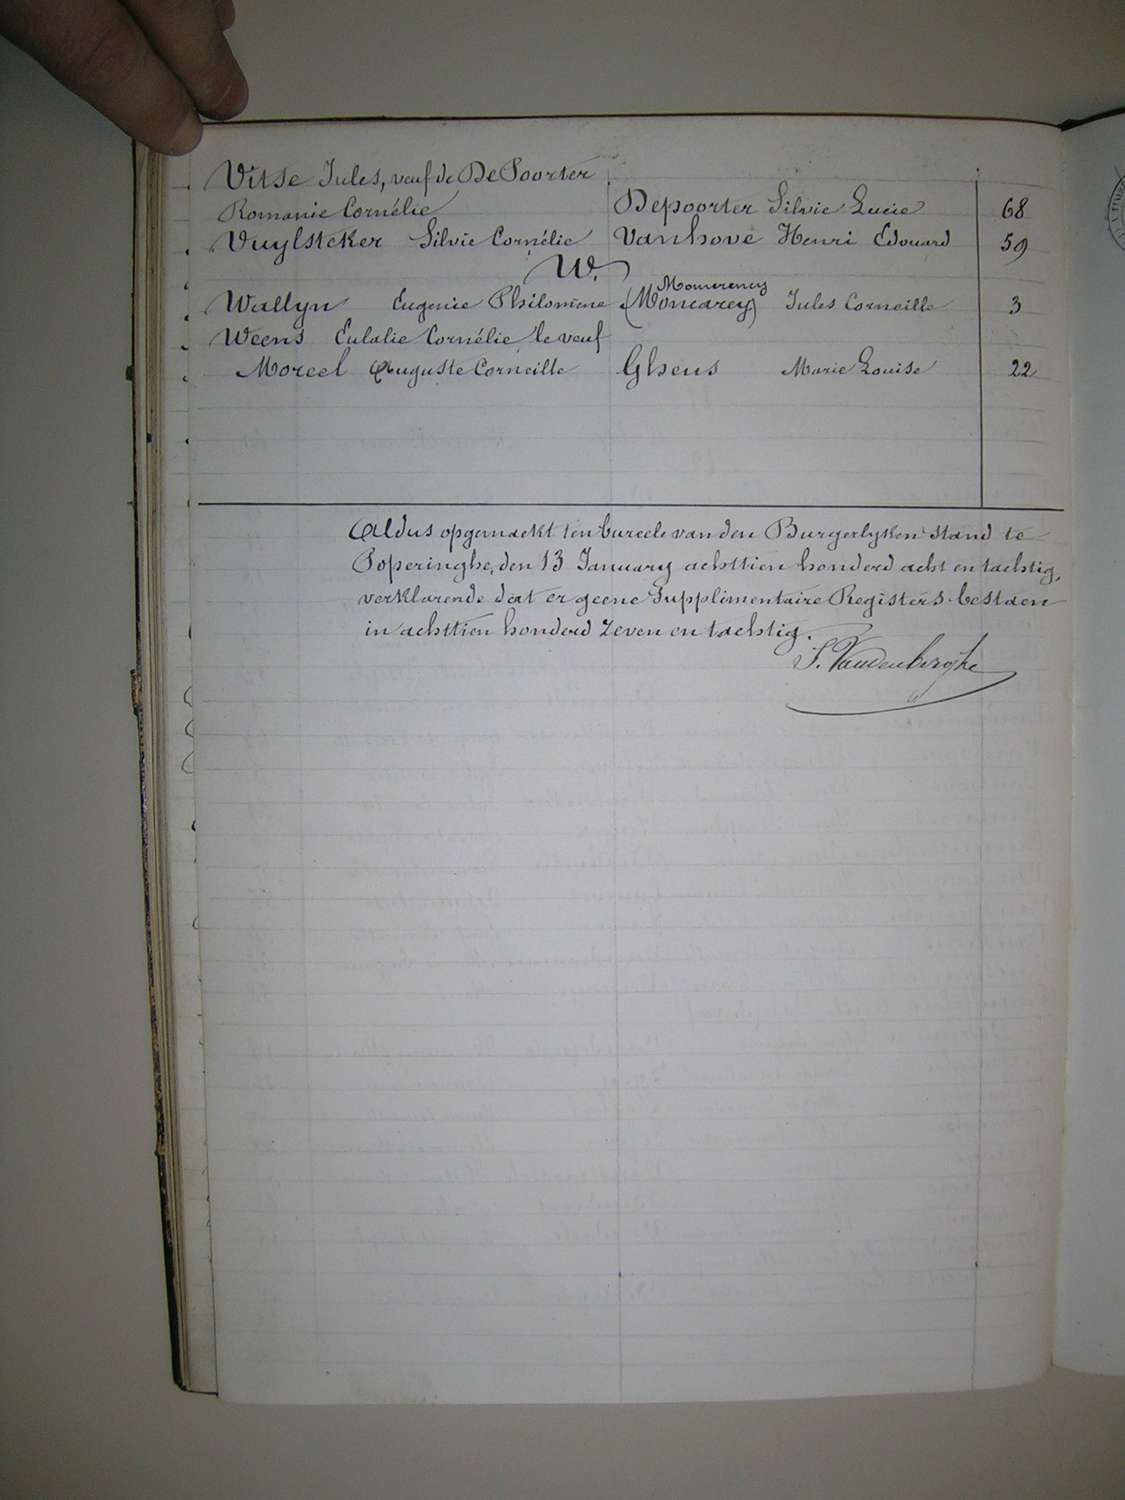 Vitse Jules, veuf de De Poorter
Romanie Cornélie Depoorter Silvie Lucie 68
Vuylsteker Silvie Cornélie Vanhove Henri Edouard 59
W.
Momerency
Wallyn Eugenie Philomène (Moncarey) Jules Corneille 3
Weens Eulalie Cornélie, le veuf
Morcel Auguste Corneille Gheus Marie Louise 22
Aldus opgemaekt ten bureele van den Burgerlyken stand te
Poperinghe, den 13 January achttien honderd acht en tachtig,
verklarende dat er geene Supplimentaire Registers bestaen
in achttien honderd zeven en tachtig.
S. Vandenberghe